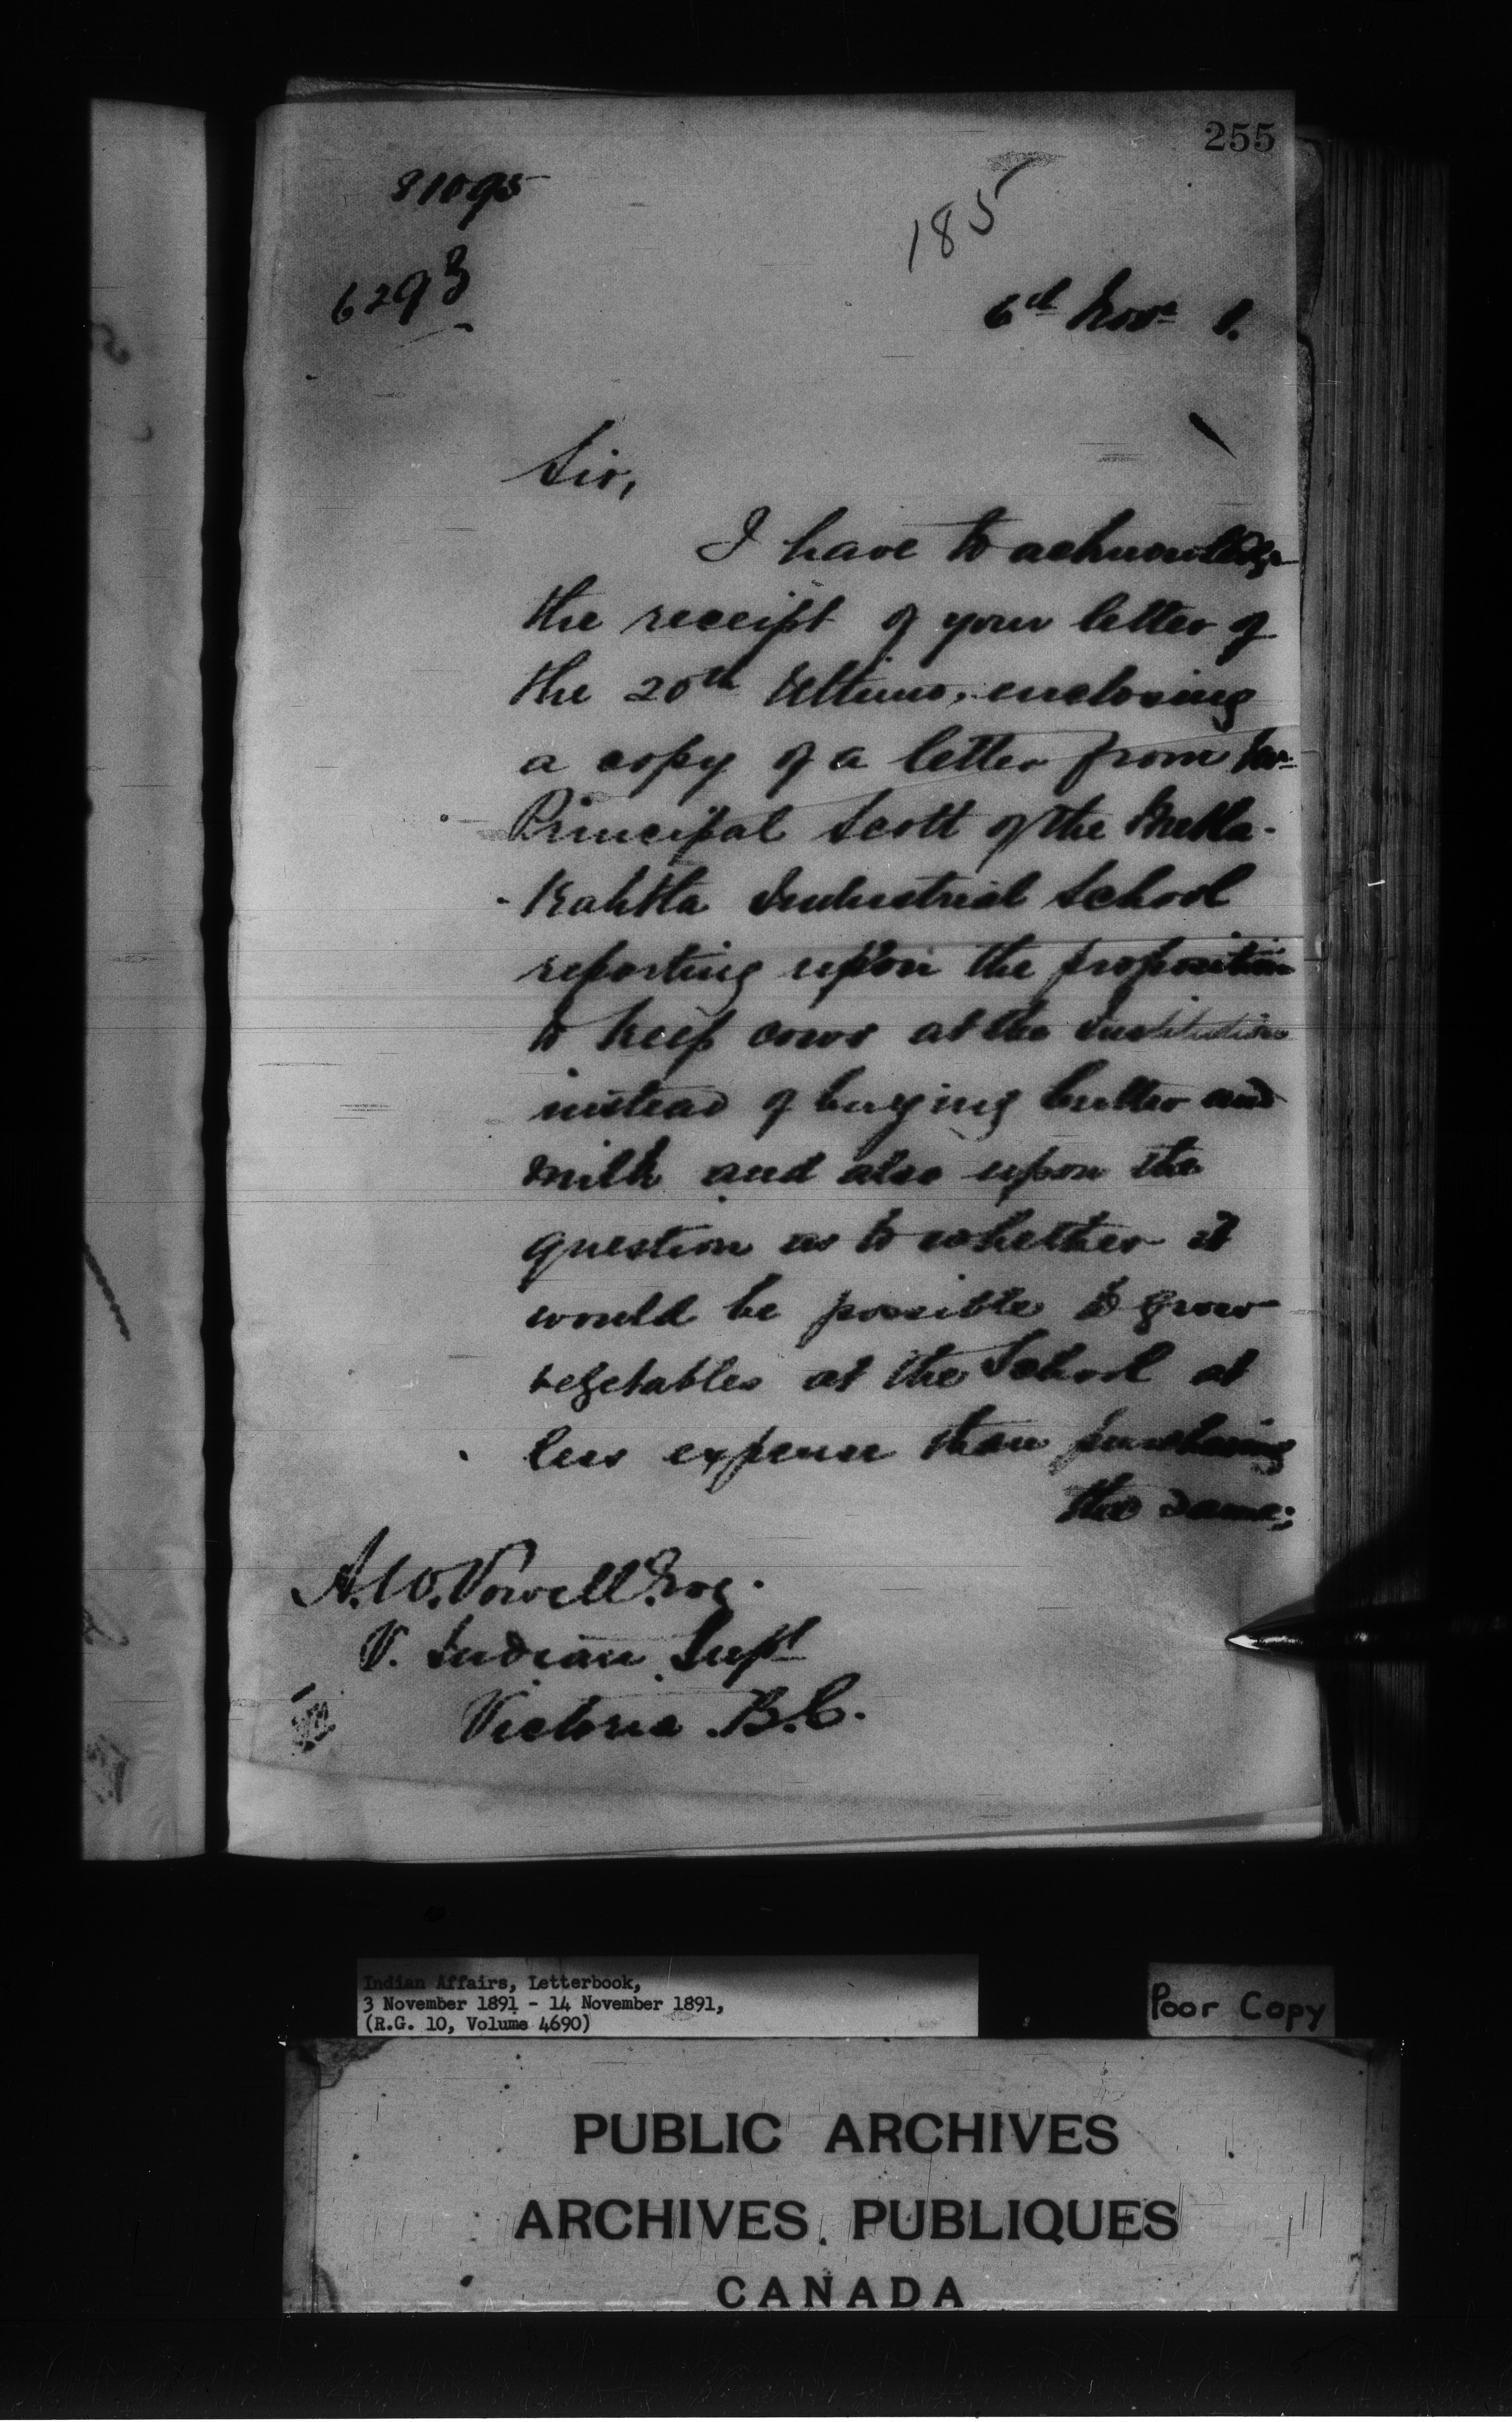 255
81095
185
6293
6th Novr 1.
Sir,
I have to acknowledge
the receipt of your letter of
the 20th Ultimo, enclosing
a copy of a letter from Mr
Principal Scott of the Metla-
-Kahtla Industrial School
reporting upon the proposition
to keep cows at the Institution
instead of buying butter and
milk and also upon the
question as to whether it
would be possible to grow
vegetables at the School at
less expense than purchasing
the same;
A.W. Vowell Esq.
V. Indian Supt
Victoria B.C.
Indian Affairs, Letterbook,
3 November 1891 - 14 November 1891,
(R.G. 10, Volume 4690)
Poor Copy
PUBLIC ARCHIVES
ARCHIVES PUBLIQUES
CANADA